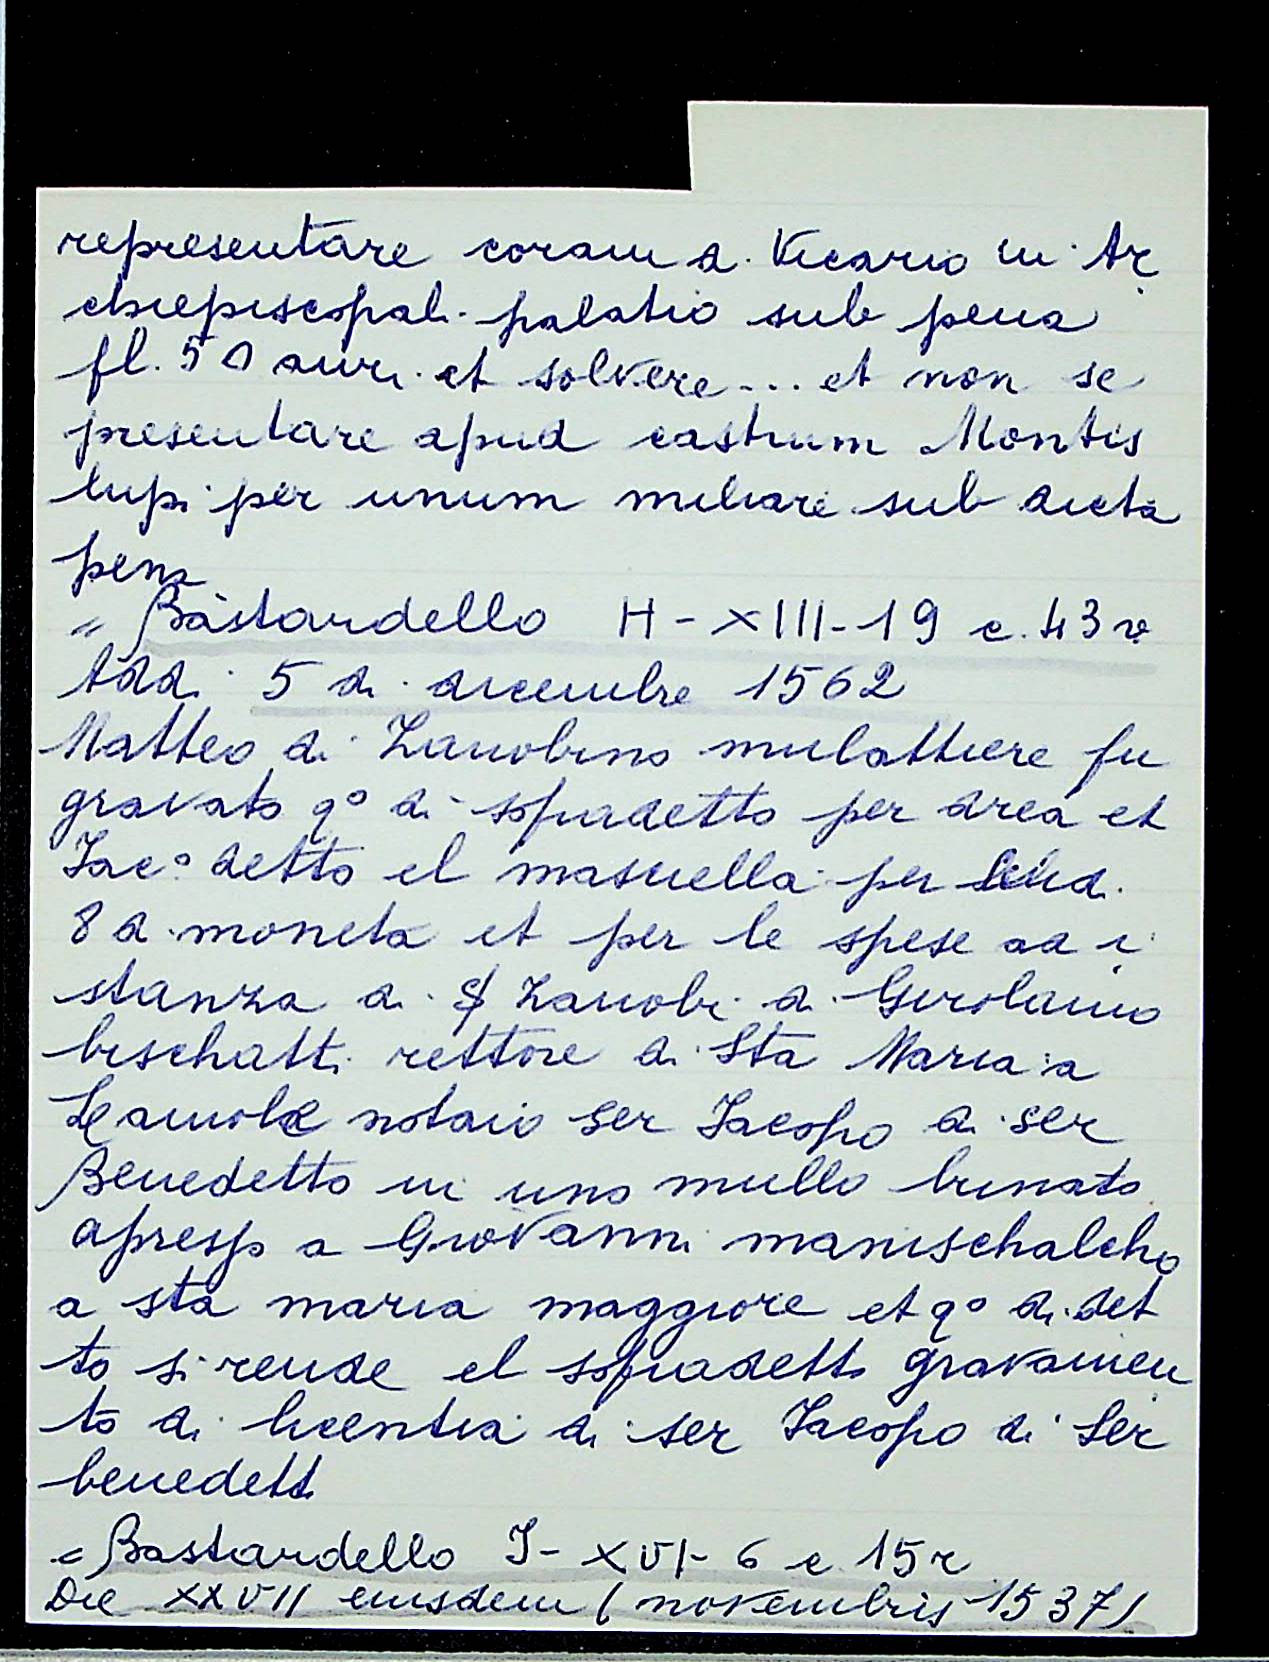 representare coram d. Vicario in Ar
chiepiscopali palatio sub pena
fl. 50 auri et solvere... et non se
presentare apud castrum Montis
lupi per unum miliare sub dicta
pena
" Bastardello H-XIII-19 c. 43v
Addi 5 di dicembre 1562
Matteo di Zanobino mulattiere fu
gravato q° di sopradetto per drea et
Jac° detto el masuella per
8 d moneta et per le spese ad i
stanza di S Zanobi di Girolamo
bischatti rettore di Sta Maria a
Lamole notaio Ser Jacopo di ser
Benedetto in uno mullo brinato
apresso a Giovanni manischalcho
a sta maria maggiore et q° di det
to si rende el sopradetto gravamen
to di licentia di ser Jacopo di Ser
benedetto
= Bastardello J-XVI-6 c. 15r
Die XXVII eiusdem (novembris 1537)